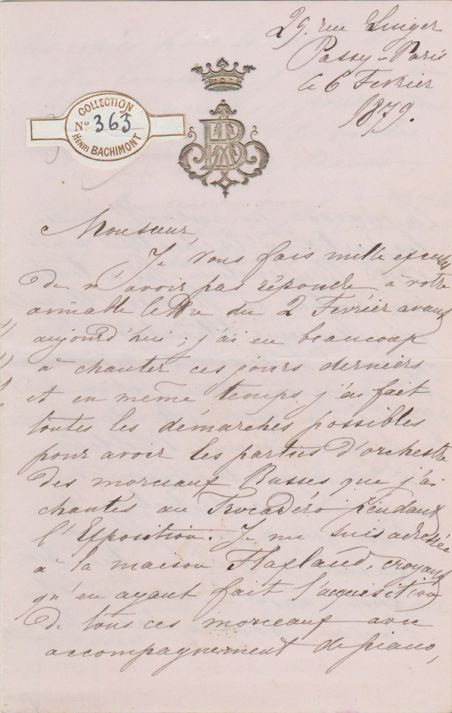 29. rue Singer
Passy-Paris
le 6 Fevrier
1879.
COLLECTION
No. 363
HENRI BACHIMONT
Monsieur,
Je vous fais mille excuses
de n'avoir pas répondu à votre
aimable lettre du 2 Fevrier avant
aujourd'hui; j'ai eu beaucoup
à chanter ces jours derniers
et en même temps j'ai fait
toutes les démarches possibles
pour avoir les parties d'orchestre
des morceaux Russes que j'ai
chantés au Trocadéro pendant
l'Exposition. Je me suis adressée
à la maison Flaxland, croyant
qu'en ayant fait l'acquisition
de tous ces morceaux avec
accompagnement de piano,